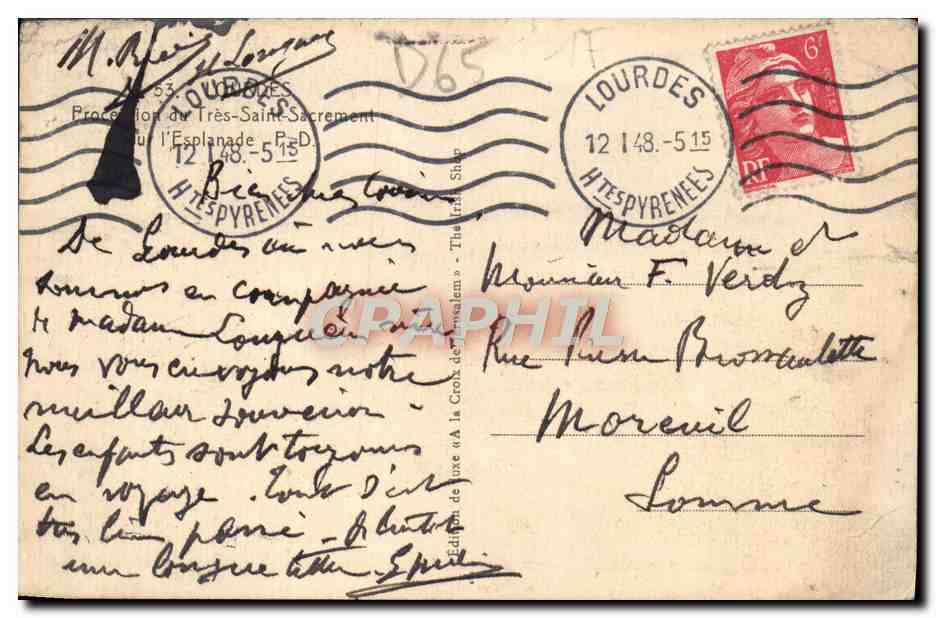 D65
17
53. LOURDES
Procession du Très-Saint-Sacrement
sur l'Esplanade P-D.
LOURDES
12 I 48.-5 15
HTES PYRENEES
LOURDES
12 I 48.-5 15
HTES PYRENEES
6F
RF
De Lourdes où nous
sommes en compagnie
de madame
nous vous envoyons notre
meilleur souvenir.
Les enfants sont toujours
en voyage. Tout s'est
très bien passé. A bientôt
une longue lettre.
Edition de luxe «A la Croix de Jérusalem» - The Irish Shop
CPAPHIL
Madame et
Monsieur F. Verdoz
Rue Pierre Brossolette
Moreuil
Somme